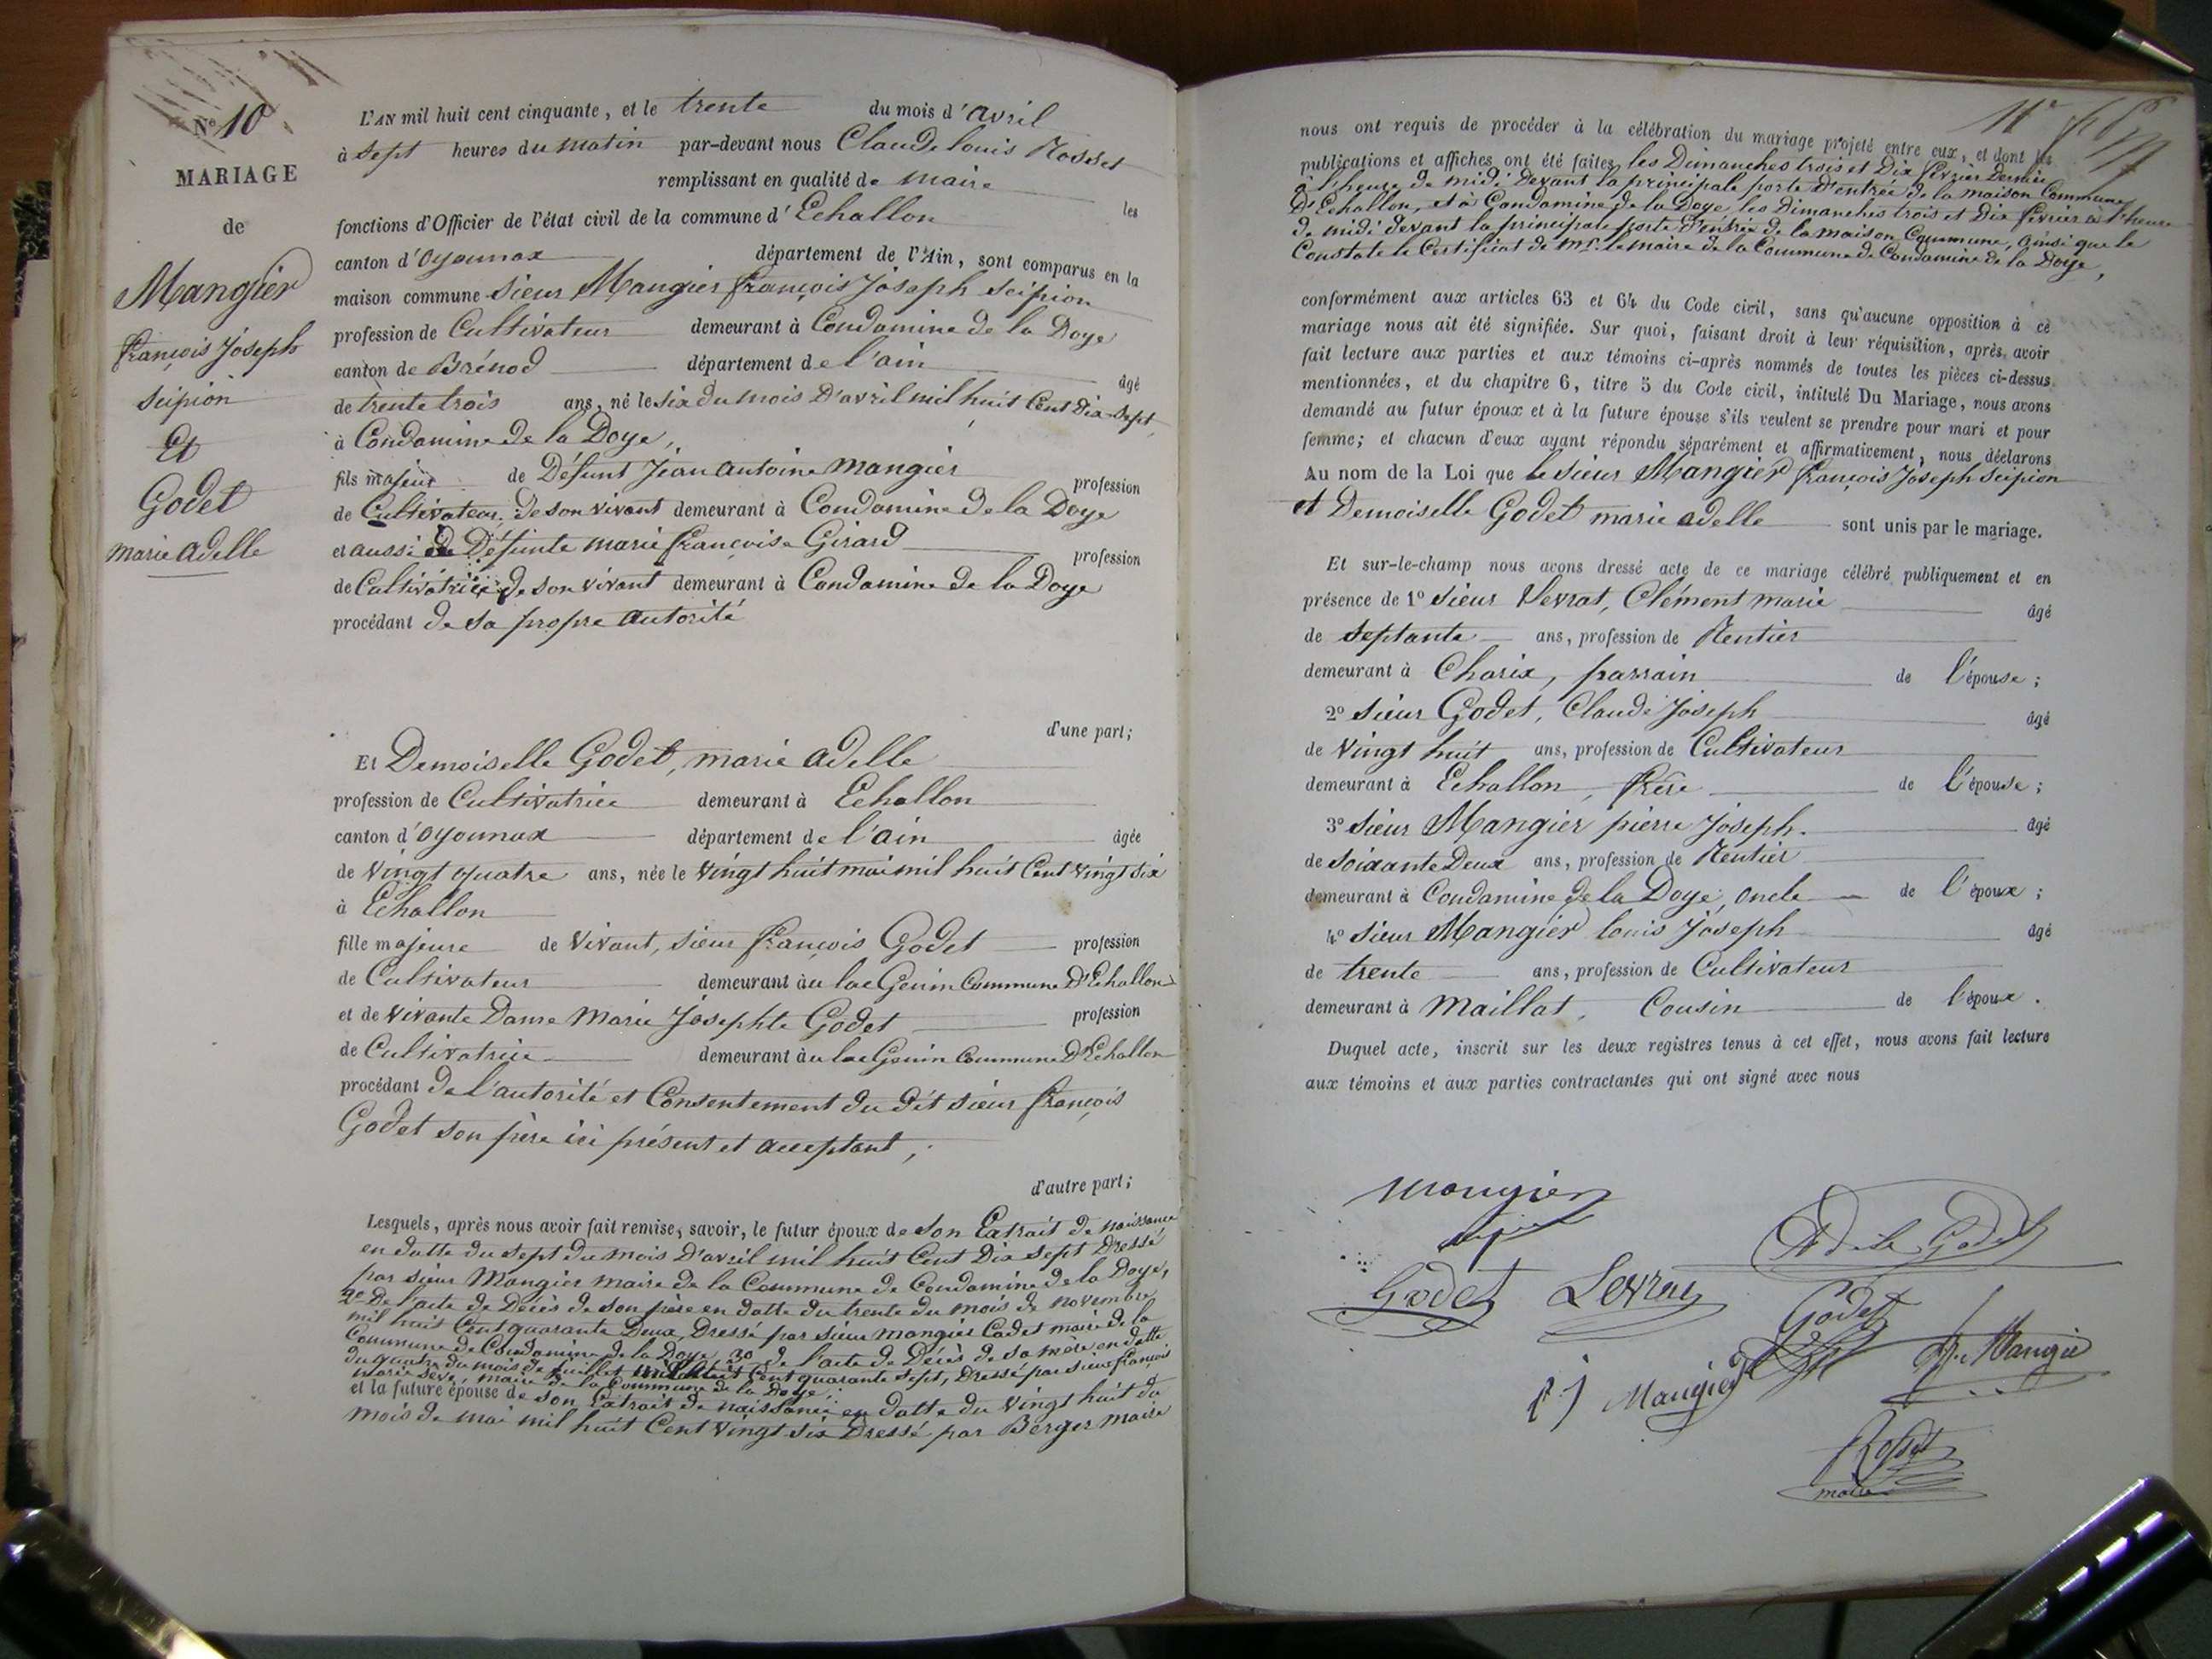 N° 10
MARIAGE
de
Mangier
françois Joseph
Scipion
Et
Godet
marie adelle
L'AN mil huit cent cinquante, et le trente du mois d'avril
à sept heures du matin par-devant nous Claude louis Rosset
remplissant en qualité de maire les
fonctions d'Officier de l'état civil de la commune d'Echallon
canton d'oyonnax département de l'Ain, sont comparus en la
maison commune sieur Mangier françois Joseph Scipion
profession de Cultivateur demeurant à Condamine de la Doye
canton de Brénod département de l'ain âgé
de trente trois ans, né le six du mois d'avril mil huit Cent dix-sept,
à Condamine de la Doye,
fils majeur de Défunt Jean antoine Mangier profession
de Cultivateur de son vivant demeurant à Condamine de la Doye
et aussi de Défunte marie françoise Girard profession
de Cultivatrice de son vivant demeurant à Condamine de la Doye
procédant de sa propre autorité
d'une part;
Et Demoiselle Godet, marie adelle
profession de Cultivatrice demeurant à Echallon
canton d'oyonnax département de l'ain âgée
de vingt quatre ans, née le vingt huit mai mil huit Cent vingt six
à Echallon
fille majeure de vivant, sieur françois Godet profession
de Cultivateur demeurant au lac Genin Commune D'Echallon
et de vivante Dame Marie Josephte Godet profession
de Cultivatrice demeurant au lac Genin Commune D'Echallon
procédant de l'autorité et Consentement du dit sieur françois
Godet son père ici présent et acceptant,
d'autre part;
Lesquels, après nous avoir fait remise, savoir, le futur époux de son Extrait de naissance
en datte du sept du mois d'avril mil huit Cent Dix sept Dressé
par sieur Mangier maire de la Commune de Condamine de la Doye,
2° De l'acte de Décès de son père en datte du trente du mois de novembre
mil huit Cent quarante Deux, Dressé par sieur mangier Cadet maire de la
Commune de Condamine de la Doye, 3° de l'acte de Décès de sa mère en datte
du quatre du mois de Juillet mil huit Cent quarante sept, Dressé par sieur françois
marie maire de la Commune de la Doye;
et la future épouse de son Extrait de naissance en datte du vingt huit du
mois de mai mil huit Cent vingt six Dressé par Berger maire
nous ont requis de procéder à la célébration du mariage projeté entre eux, et dont les
publications et affiches ont été faites les Dimanches trois et Dix février Dernier
à l'heure de midi Devant la principale porte d'entrée de la maison Commune
D'Echallon, et à Condamine de la Doye les Dimanches trois et dix février à l'heure
de midi devant la principale porte d'entrée de la maison Commune, ainsi que le
Constate le Certificat de Mr. le maire de la Commune de Condamine de la Doye,
conformément aux articles 63 et 64 du Code civil, sans qu'aucune opposition à ce
mariage nous ait été signifiée. Sur quoi, faisant droit à leur réquisition, après avoir
fait lecture aux parties et aux témoins ci-après nommés de toutes les pièces ci-dessus
mentionnées, et du chapitre 6, titre 5 du Code civil, intitulé Du Mariage, nous avons
demandé au futur époux et à la future épouse s'ils veulent se prendre pour mari et pour
femme; et chacun d'eux ayant répondu séparément et affirmativement, nous déclarons
Au nom de la Loi que le sieur Mangier françois Joseph Scipion
et Demoiselle Godet marie adelle sont unis par le mariage.
Et sur-le-champ nous avons dressé acte de ce mariage célébré publiquement et en
présence de 1° sieur Levrat, Clément marie âgé
de septante ans, profession de Rentier
demeurant à Charix, parrain de l'épouse;
2° sieur Godet, Claude Joseph âgé
de vingt huit ans, profession de Cultivateur
demeurant à Echallon, frère de l'épouse;
3° sieur Mangier pierre Joseph. âgé
de soixante Deux ans, profession de Rentier
demeurant à Condamine de la Doye, oncle de l'époux;
4° sieur Mangier louis Joseph âgé
de trente ans, profession de Cultivateur
demeurant à Maillat, Cousin de l'époux.
Duquel acte, inscrit sur les deux registres tenus à cet effet, nous avons fait lecture
aux témoins et aux parties contractantes qui ont signé avec nous
Mangier
Adele Godet
Godet Levrat Godet
Mangier Mangier
Rosset
maire